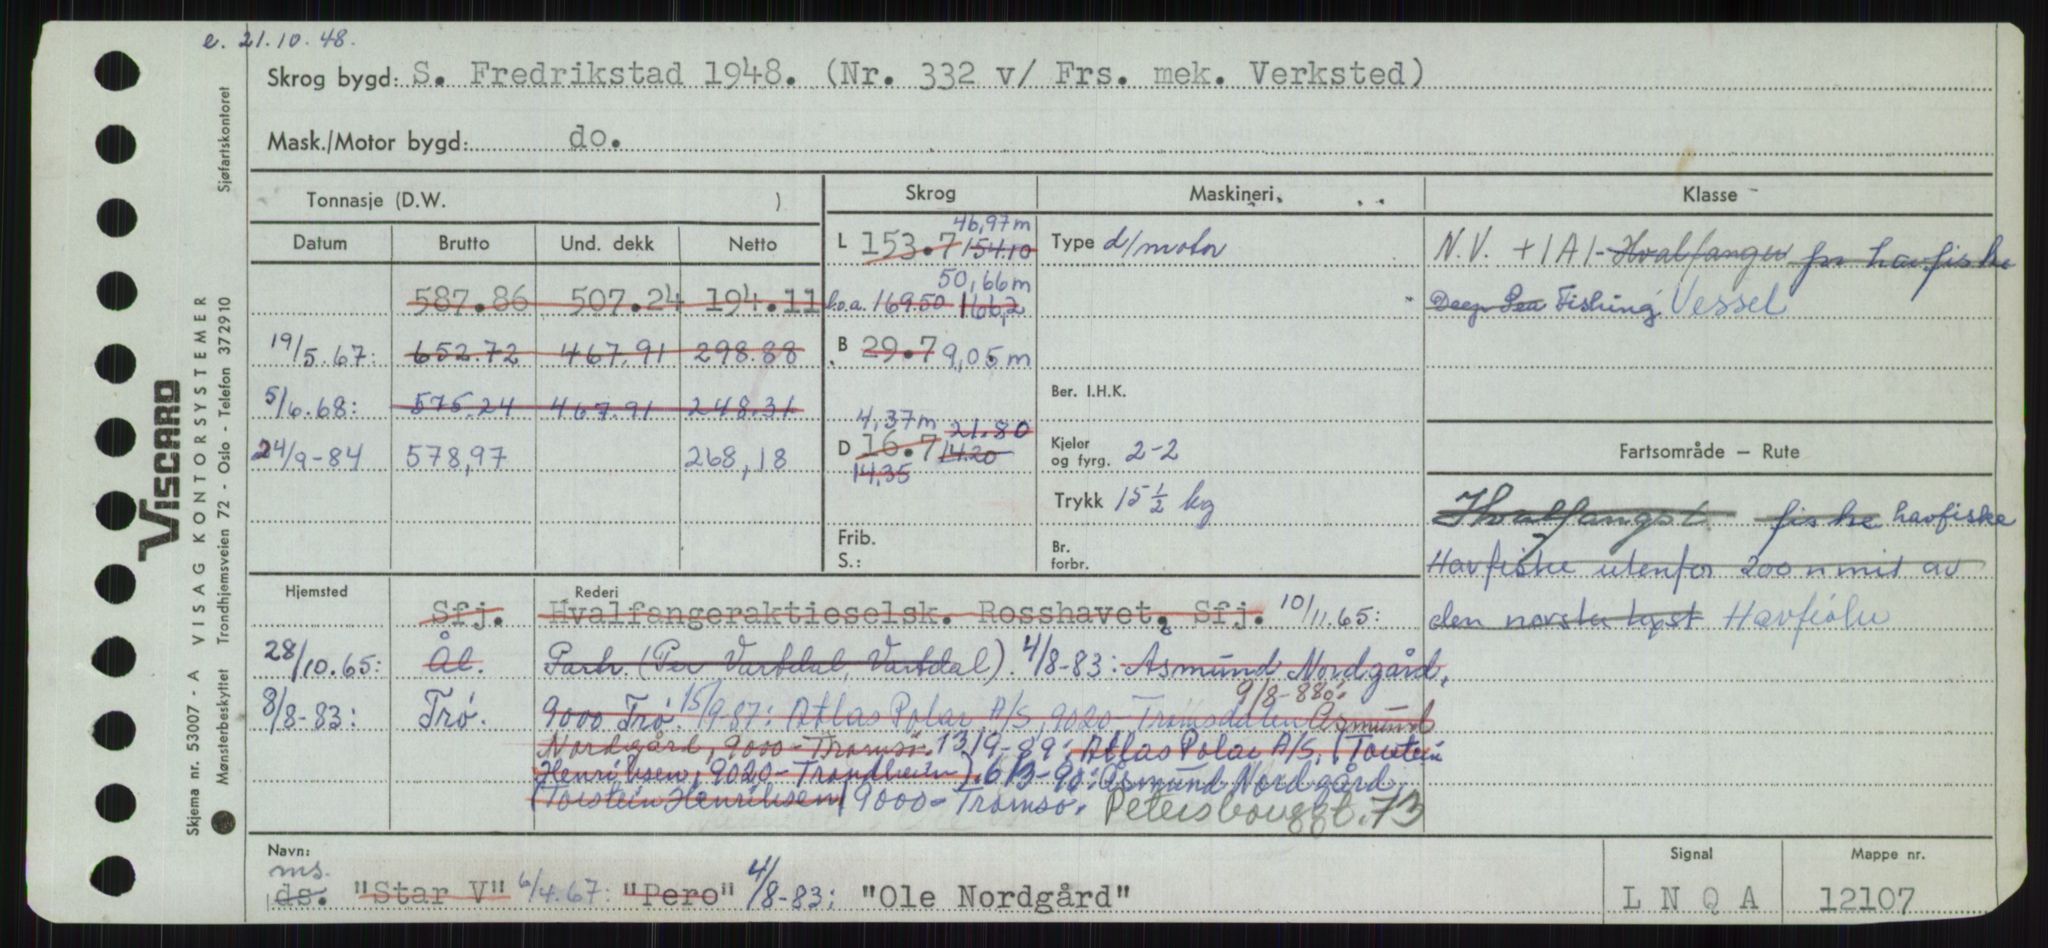 e. 21.10.48.
Skrog bygd: S. Fredrikstad 1948. (Nr. 332 v/ Frs. mek. Verksted)
Mask./Motor bygd: do.
Tonnasje (D.W. )
Datum Brutto Und. dekk Netto
587.86 507.24 194.11
19/5.67: 652.72 467.91 298.88
5/6.68: 575.24 467.91 248.31
24/9-84 578,97 268,18
Skrog
46,97 m
L 153.7 154.10
50,66 m
l.o.a. 169.50 166,2
B 29.7 9,05 m
4,37 m 21.80
D 16.7 14.20
14,35
Frib.
S.:
Maskineri.
Type d/motor
Ber. I.H.K.
Kjeler
og fyrg. 2-2
Trykk 15 ½ kg
Br.
forbr.
Klasse
N.V. +1A1-Hvalfanger for havfiske
Deep Sea Fishing Vessel
Fartsområde — Rute
Hvalfangst fiske havfiske
Havfiske utenfor 200 n mil av
den norske kyst Havfiske
Hjemsted Rederi
Sfj. Hvalfangeraktieselsk. Rosshavet, Sfj. 10/11.65:
28/10.65: Ål. Partr. (Per Vartdal, Vartdal). 4/8-83: Asmund Nordgård,
8/8-83: Trø. 9000 Trø. 15/9-87: Atlas Polar A/S, 9020-Tromsdalen 9/8-88: Asmund
Nordgård, 9000-Tromsø. 13/9-89: Atlas Polar A/S, (Torstein
Henriksen, 9020-Trondheim). 6/3-90: Asmund Nordgård,
(Torstein Henriksen) 9000-Tromsø. Petersborggt. 73
Navn:
ms.
ds. "Star V" 6/4.67: "Pero" 4/8-83: "Ole Nordgård"
Signal
L N Q A
Mappe nr.
12107
Skjema nr. 53007 - A VISAG KONTORSYSTEMER Sjøfartskontoret
Mønsterbeskyttet Trondhjemsveien 72 - Oslo - Telefon 372910
VISCARD